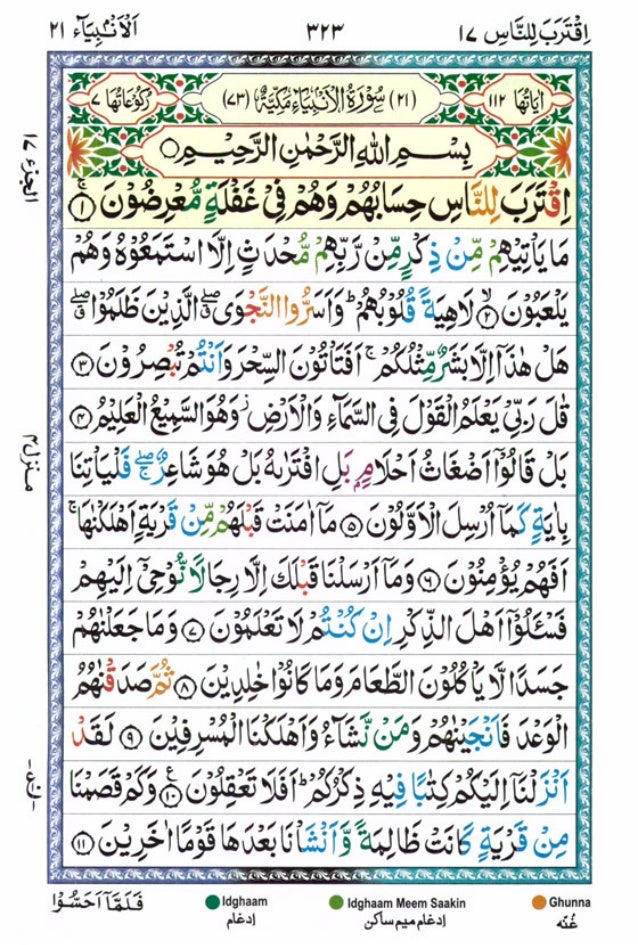 اِقْتَرَبَ لِلنَّاسِ ۱۷
۳۲۳
اَلْاَنْۢبِيَآء ۲۱
اٰيَاتُهَا ۱۱۲
(۲۱) سُوْرَةُ الْاَنْۢبِيَآءِ مَكِّيَّةٌ (۷۳)
رُكُوْعَاتُهَا ۷
بِسْمِ اللّٰهِ الرَّحْمٰنِ الرَّحِيْمِ ۝
اِقْتَرَبَ لِلنَّاسِ حِسَابُهُمْ وَهُمْ فِيْ غَفْلَةٍ مُّعْرِضُوْنَ ۚ ۱
مَا يَاْتِيْهِمْ مِّنْ ذِكْرٍ مِّنْ رَّبِّهِمْ مُّحْدَثٍ اِلَّا اسْتَمَعُوْهُ وَهُمْ
يَلْعَبُوْنَ ۙ ۲ لَاهِيَةً قُلُوْبُهُمْ ؕ وَاَسَرُّوا النَّجْوَى ۖ ق الَّذِيْنَ ظَلَمُوْا ۖ ق
هَلْ هٰذَآ اِلَّا بَشَرٌ مِّثْلُكُمْ ۚ اَفَتَاْتُوْنَ السِّحْرَ وَاَنْتُمْ تُبْصِرُوْنَ ۳
قٰلَ رَبِّيْ يَعْلَمُ الْقَوْلَ فِي السَّمَآءِ وَالْاَرْضِ ز وَهُوَ السَّمِيْعُ الْعَلِيْمُ ۴
بَلْ قَالُوْٓا اَضْغَاثُ اَحْلَامٍۢ بَلِ افْتَرٰىهُ بَلْ هُوَ شَاعِرٌ ۖ ج فَلْيَاْتِنَا
بِاٰيَةٍ كَمَآ اُرْسِلَ الْاَوَّلُوْنَ ۵ مَآ اٰمَنَتْ قَبْلَهُمْ مِّنْ قَرْيَةٍ اَهْلَكْنٰهَا ۚ
اَفَهُمْ يُؤْمِنُوْنَ ۶ وَمَآ اَرْسَلْنَا قَبْلَكَ اِلَّا رِجَالًا نُّوْحِيْٓ اِلَيْهِمْ
فَسْـَٔلُوْٓا اَهْلَ الذِّكْرِ اِنْ كُنْتُمْ لَا تَعْلَمُوْنَ ۷ وَمَا جَعَلْنٰهُمْ
جَسَدًا لَّا يَاْكُلُوْنَ الطَّعَامَ وَمَا كَانُوْا خٰلِدِيْنَ ۸ ثُمَّ صَدَقْنٰهُمُ
الْوَعْدَ فَاَنْجَيْنٰهُمْ وَمَنْ نَّشَآءُ وَاَهْلَكْنَا الْمُسْرِفِيْنَ ۹ لَقَدْ
اَنْزَلْنَآ اِلَيْكُمْ كِتٰبًا فِيْهِ ذِكْرُكُمْ ؕ اَفَلَا تَعْقِلُوْنَ ع ۱۰ وَكَمْ قَصَمْنَا
مِنْ قَرْيَةٍ كَانَتْ ظَالِمَةً وَّاَنْشَاْنَا بَعْدَهَا قَوْمًا اٰخَرِيْنَ ۱۱
الجزء ۱۷
منزل ۴
فَلَمَّآ اَحَسُّوْا
Idghaam
ادغام
Idghaam Meem Saakin
ادغام میم ساکن
Ghunna
غُنّه